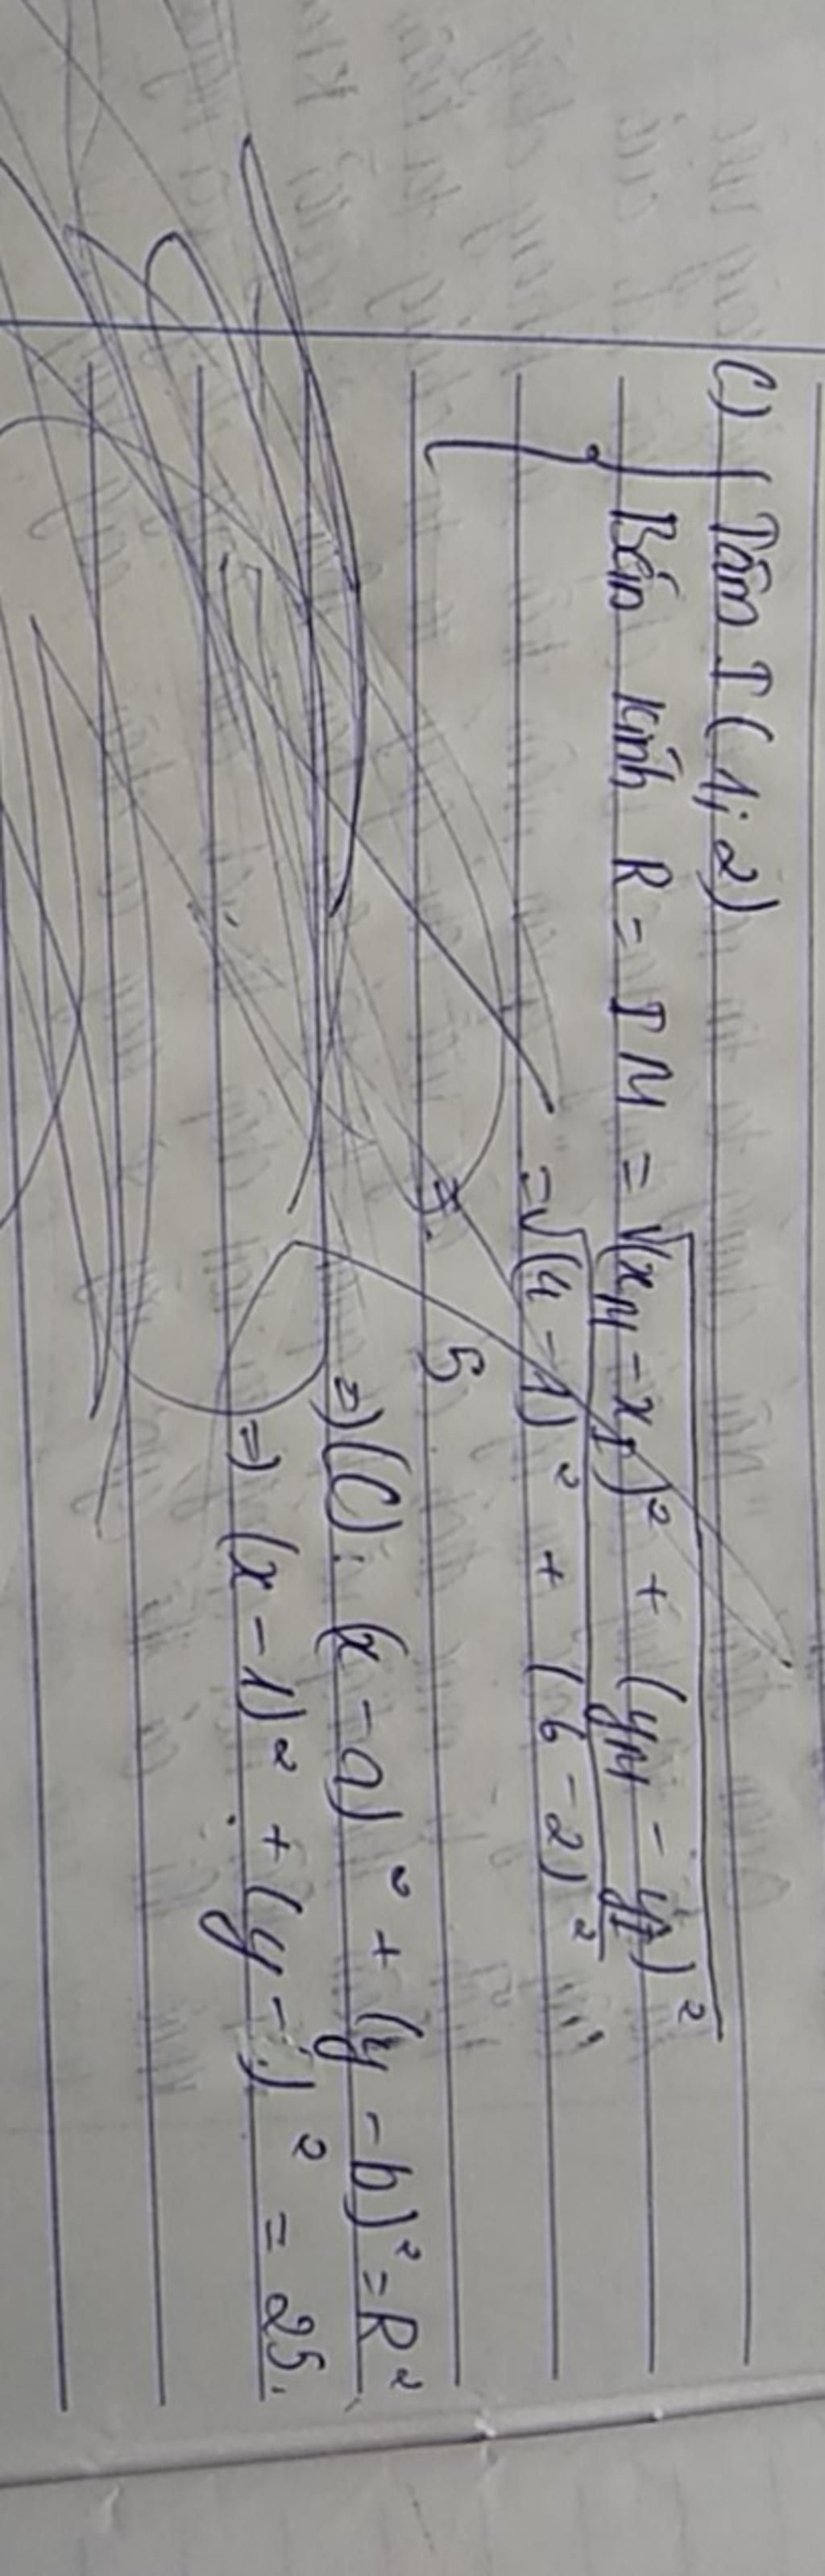 C) Tâm I (1; 2)
Bán kính R = IM = √(x_M - x_I)² + (y_M - y_I)²
= √(4 - 1)² + (6 - 2)²
= 5
=> (C): (x - a)² + (y - b)² = R²
=> (x - 1)² + (y - )² = 25.